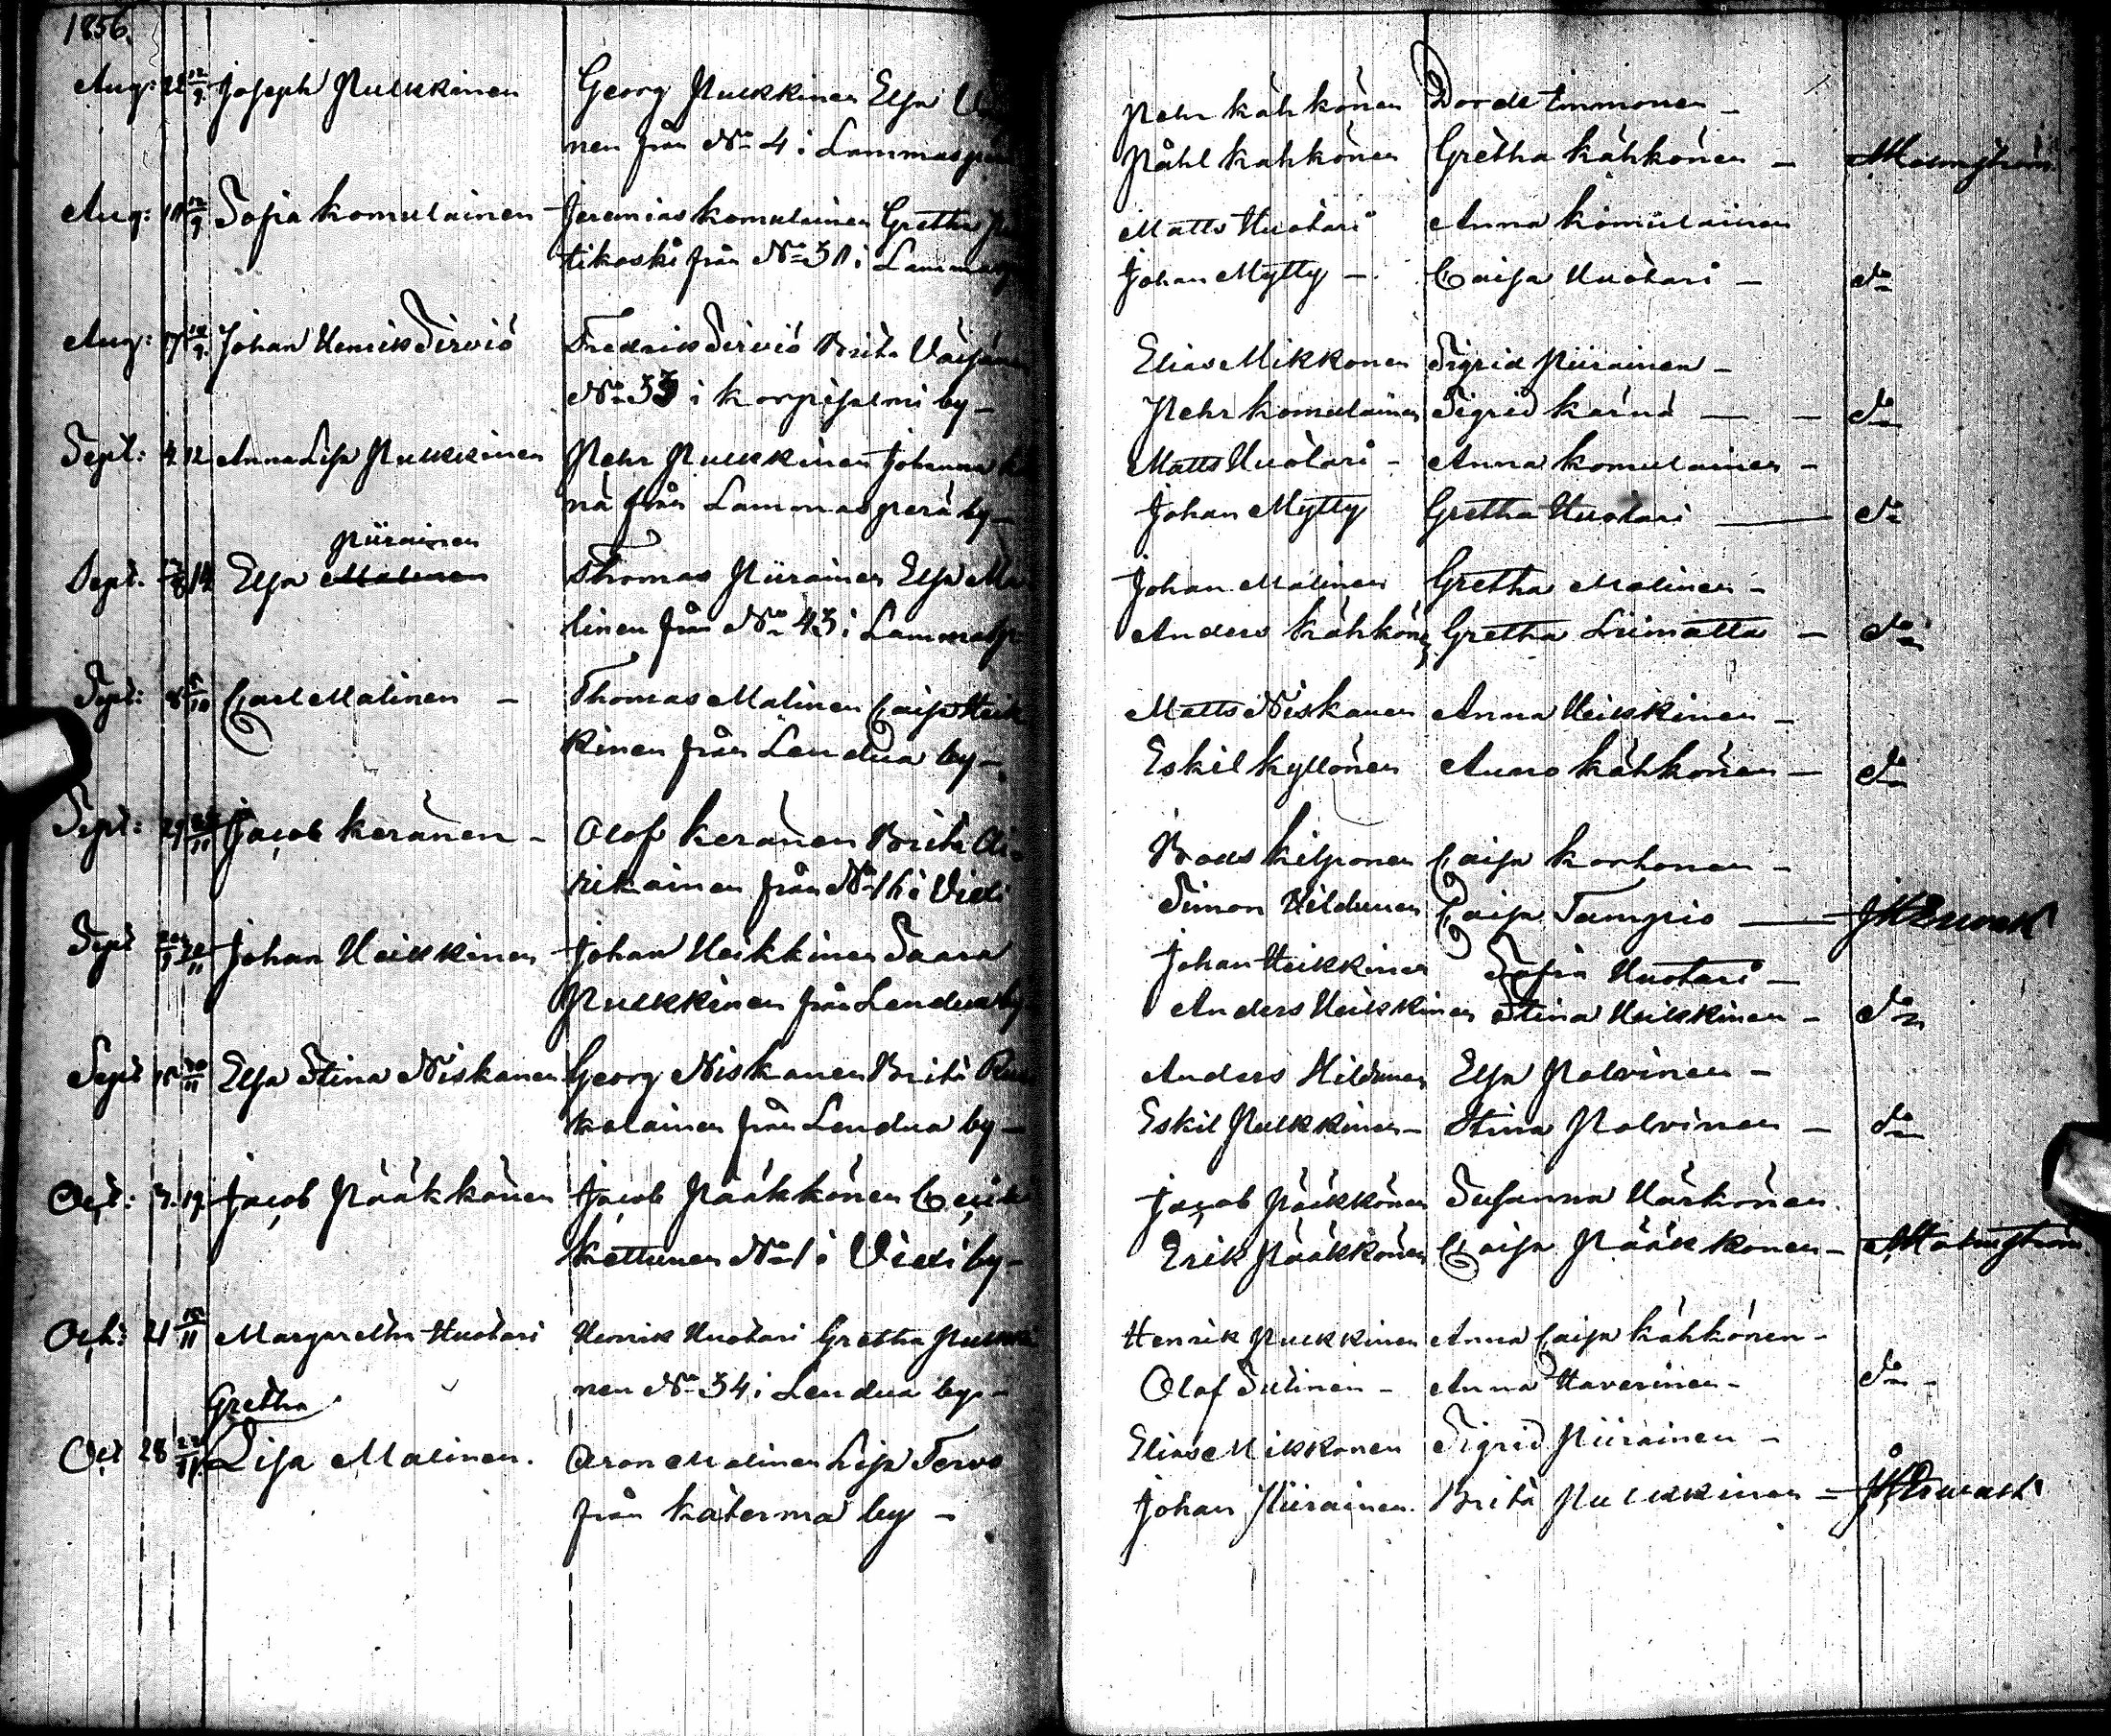 1856.
Aug: 28 12/9. Joseph Pulkkinen Georg Pulkkinen Elsa
nen från No 4 i Lammasperä
Aug: 12/9 Sofia Komulainen Jeremias Komulainen Gretha
tikoski från No 31 i Lammasp
Aug: 17 12/9. Johan Henrik Sirviö Fredrik Sirviö Brita Väisänen
No 33 i Korpisalmi by –
Sept: 4. 12 Anna Lisa Pulkkinen Pehr Pulkkinen Johanna
nä från Lammasperä by –
Piirainen
Sept. 14 Elsa Malinen Thomas Piirainen Elsa Ma
linen från No 43 i Lammaspe
Sept: 8 /10 Carl Malinen – Thomas Malinen Caisa Heik
kinen från Lendua by –
Sept: 29 /11 Jacob Keränen – Olof Keränen Brita Ai
rikainen från No 16 i Viexi
Sept /11 Johan Heikkinen Johan Heikkinen Saara
Pulkkinen från Lendua by
Sept 15 /11 Elsa Stina Niskanen Georg Niskanen Brita
kalainen från Lendua by –
Oct: 7. 19. Jacob Pääkkönen Jacob Pääkkönen
Kettunen No 1 i Viexi by –
Oct: 21 /11 Margaretha Huotari Henrik Huotari Gretha Pulkki
nen No 34 i Lendua by –
Gretha
Oct 28 /11. Lisa Malinen. Aron Malinen Lisa Tervo
från Katerma by –
Pehr Kähkönen Dorde Timmonen –
Påhl Kähkönen Gretha Kähkönen – Malmström
Matts Huotari Anna Komulainen
Johan Mytty – Caisa Huotari – do
Elias Mikkonen Sigrid Piirainen –
Pehr Komulainen Sigrid Kärnä – – do
Matts Huotari – Anna Komulainen –
Johan Mytty Gretha Huotari – do
Johan Malinen Gretha Malinen –
Anders Kähkönen Gretha Liimatta – do
Matts Niskanen Anna Heikkinen –
Eskil Kyllönen Anna Kähkönen – do
Boas Kilponen Caisa Korhonen –
Simon Hildunen Caisa Tampio –
Johan Heikkinen Sofia Huotari –
Anders Heikkinen Stina Heikkinen – do
Anders Hildunen Elsa Polvinen –
Eskil Pulkkinen – Stina Polvinen – do
Jacob Pääkkönen Susanna Härkönen.
Erik Pääkkönen Caisa Pääkkönen – Malmström
Henrik Pulkkinen Anna Caisa Kähkönen –
Olof Sutinen – Anna Haverinen – do –
Elias Mikkonen Sigrid Piirainen –
Johan Piirainen. Brita Pulkkinen –